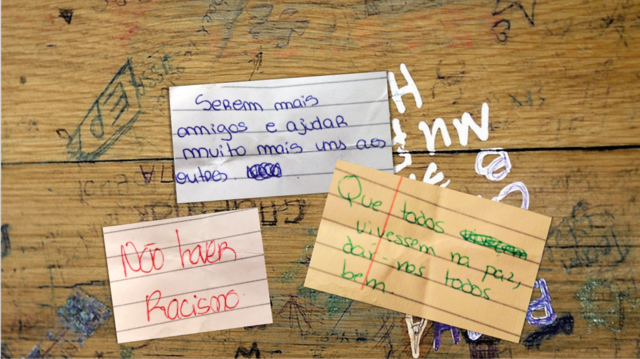 Serem mais
amigos e ajudar
muito mais uns aos
outros
Não haver
Racismo
Que todos
vivessem na paz,
dar-nos todos
bem